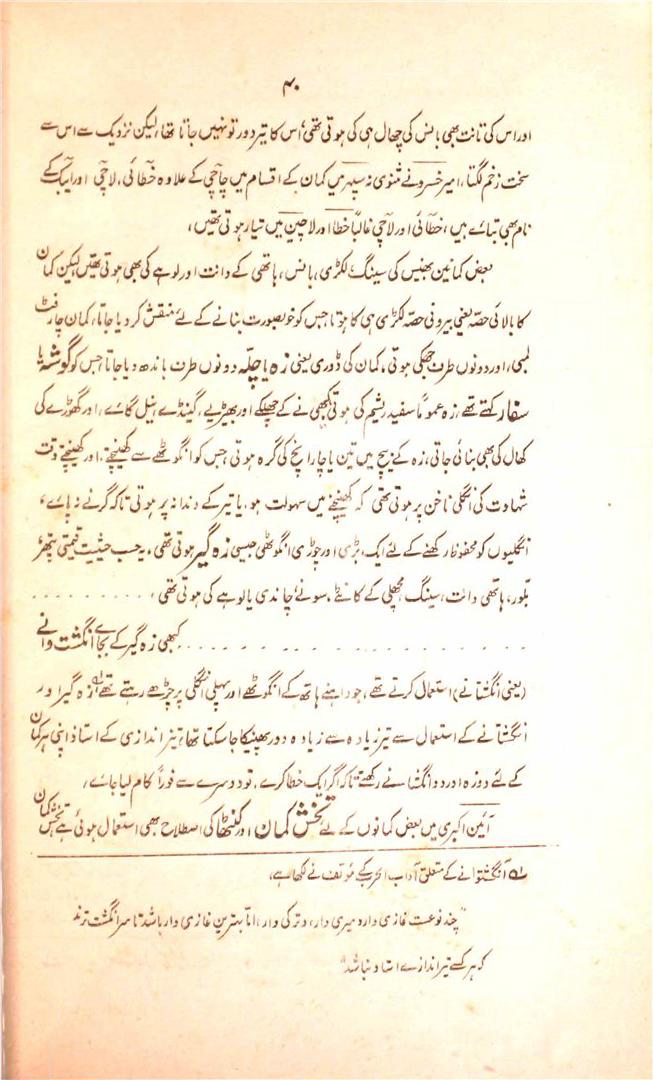 ۴۰
اور اس کی تانت بھی بانس کی چھال ہی کی ہوتی تھی، اس کا تیر دور تو نہیں جاتا تھا، لیکن نزدیک سے اس سے
سخت زخم لگتا، امیر خسرو نے مثنوی نہ سپہر میں کمان کے اقسام میں چاچی کے علاوہ خطائی، لاچی اور ایبک کے
نام بھی بتائے ہیں، خطائی اور لاچی غالباً خطا اور لاچین میں تیار ہوتی تھیں،
بعض کمانین بھینس کی سینگ، لکڑی، بانس، ہاتھی کے دانت اور لوہے کی بھی ہوتی تھیں لیکن کمان
کا بالائی حصہ یعنی بیرونی حصہ لکڑی ہی کا ہوتا جس کو خوبصورت بنانے کے لئے منقش کر دیا جاتا، کمان چار فٹ
لمبی، اور دونوں طرف جھکی ہوتی، کمان کی ڈوری یعنی زہ یا چلّہ دونوں طرف باندھ دیا جاتا جس کو گوشہ یا
سفار کہتے تھے، زہ عموماً سفید ریشم کی ہوتی کبھی نے کے چھلکے اور بھیڑیے، گینڈے، نیل گائے، اور گھوڑے کی
کھال کی بھی بنائی جاتی، زہ کے بیچ میں تین یا چار انچ کی گرہ ہوتی جس کو انگوٹھے سے کھینچتے، اور کھینچتے وقت
شہادت کی انگلی ناخن پر ہوتی تھی کہ کھینچنے میں سہولت ہو، یا تیر کے دندانہ پر ہوتی تاکہ گرنے نہ پائے،
انگلیوں کو محفوظ رکھنے کے لئے ایک، بڑی اور چوڑی انگوٹھی جیسی زہ گیر ہوتی تھی، یہ حسب حیثیت قیمتی پتھر،
بلّور، ہاتھی دانت، سینگ، مچھلی کے کانٹے، سونے، چاندی یا لوہے کی ہوتی تھی، ..........
.......................... کبھی زہ گیر کے بجائے انگشت وانے
(یعنی انگشتانے) استعمال کرتے تھے، جو داہنے ہاتھ کے انگوٹھے اور پہلی انگلی پر چڑھے رہتے تھے، زہ گیر اور
انگشتانے کے استعمال سے تیر زیادہ سے زیادہ دور پھینکا جا سکتا تھا، تیر اندازی کے استاذ اپنی ہر کمان
کے لئے دو زہ اور دو انگشتانے رکھتے تاکہ اگر ایک خطا کرے، تو دوسرے سے فوراً کام لیا جائے،
آئین اکبری میں بعض کمانوں کے لیے تخش کمان اور کنٹھا کی اصطلاح بھی استعمال ہوئی ہے، تخش کمان
۱؎ انگشتوانے کے متعلق آداب الحرب کے مؤلف نے لکھا ہے،
"چند نوعست غازی وار و میری وار، و ترکی وار، اما بہترین غازی وار باشد تا سر انگشت نرند
کہ ہر کسے تیر اندازے استاد نباشد"